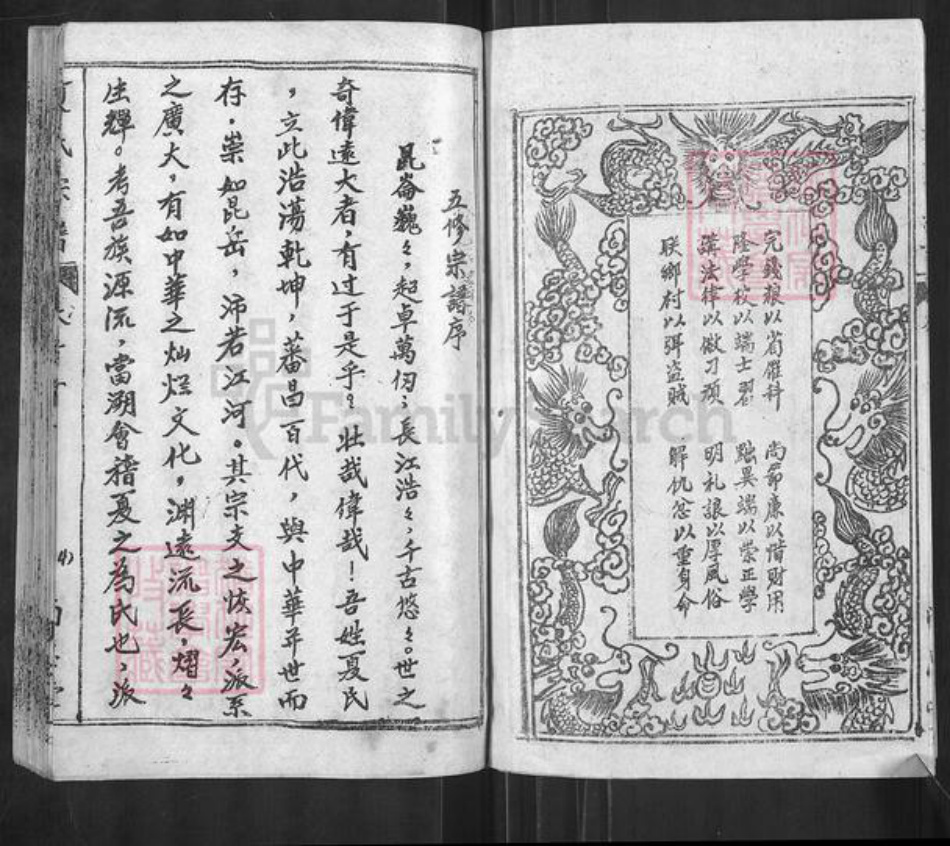 完錢粮以省催科 尚節廉以惜財用
隆學校以端士習 黜異端以崇正學
講法律以儆刁頑 明礼讓以厚風俗
联鄉村以弭盗賊 解仇忿以重身命
五修宗譜序
昆崙巍々，起卓萬仞；長江浩々，千古悠々。世之
奇偉遠大者，有过于是乎？壯哉偉哉！吾姓夏氏
，立此浩蕩乾坤，蕃昌百代，與中華並世而
存，崇如昆岳，沛若江河。其宗支之恢宏，派系
之廣大，有如中華之灿烂文化，渊遠流長，熠々
生輝。考吾族源流，當溯會稽夏之為氏也，派
氏宗譜
FamilySearch